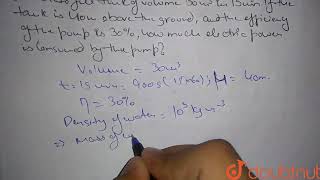 tank of volume 30m³ in 15min. If the
tank is 40m above the ground, and the efficiency
of the pump is 30%, how much electric power
is consumed by the pump?
Volume = 30m³
t = 15min = 900s (15×60); H = 40m.
η = 30%
Density of water = 10³ kg m⁻³
⇒ Mass of w
doubtnut